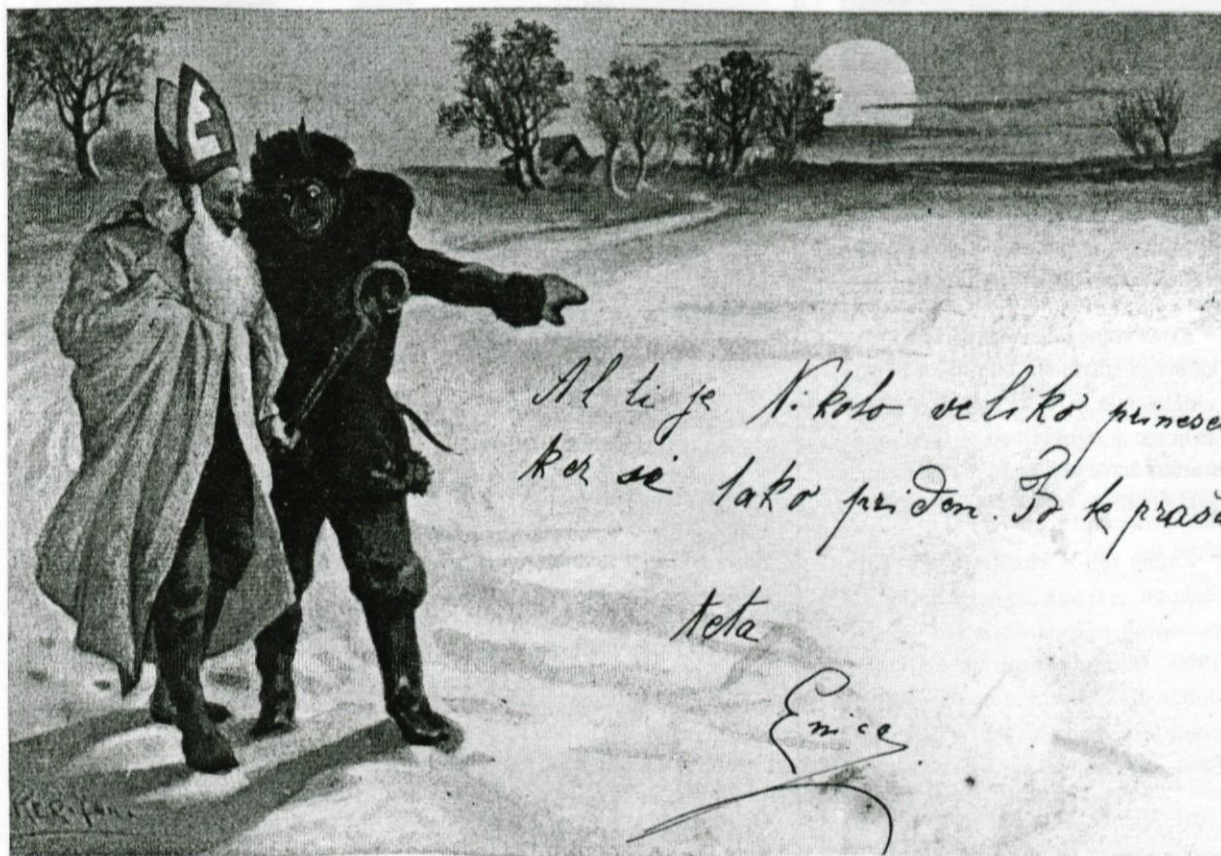 Al ti je Nikolo veliko prinese
ker si tako priden. To te praša
teta
Enica